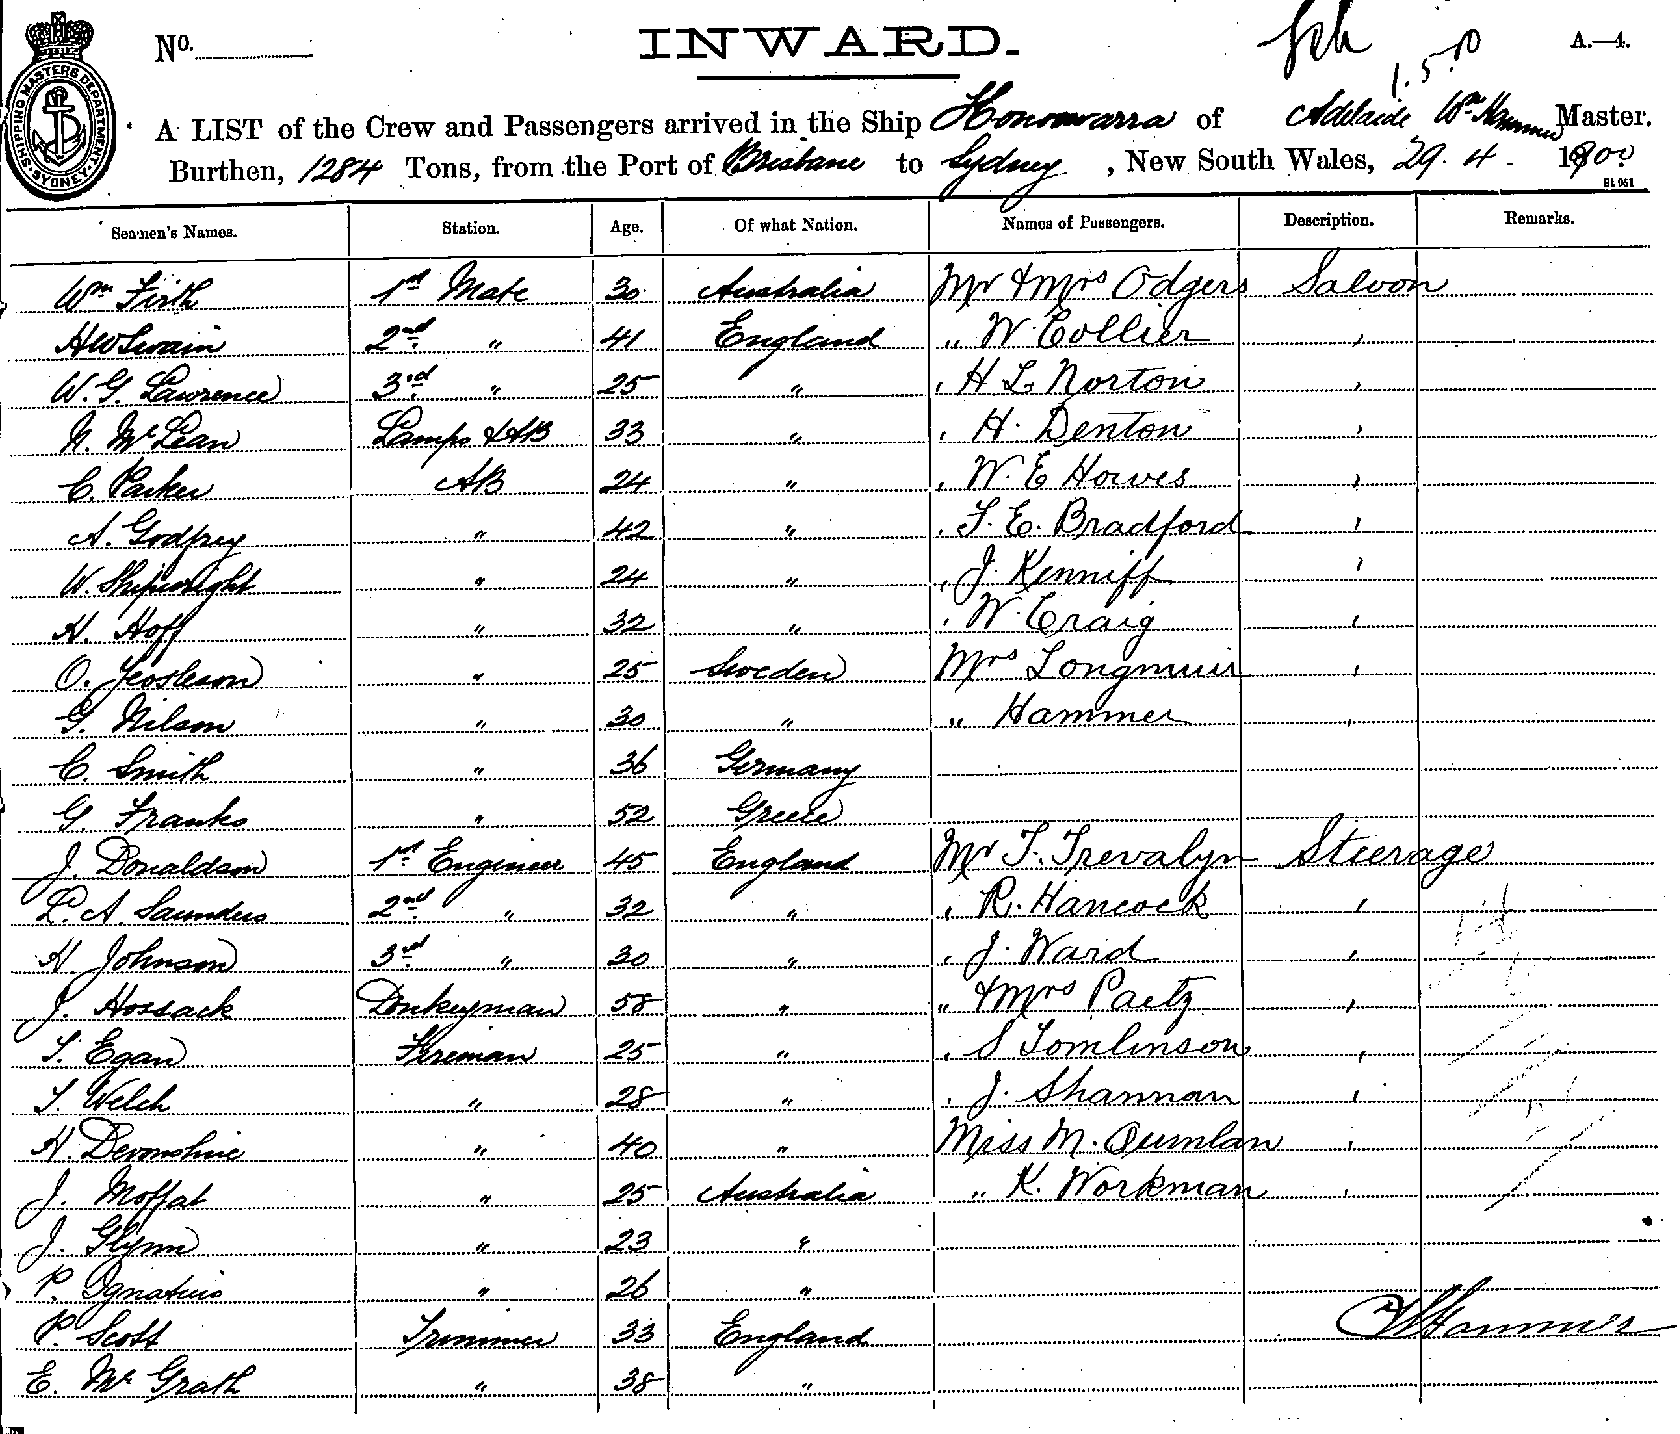 No. INWARD. A.—4.
1.5.0
SHIPPING MASTERS DEPARTMENT SYDNEY
A LIST of the Crew and Passengers arrived in the Ship Honowarra of Adelaide Wm Hammer Master.
Burthen, 1284 Tons, from the Port of Brisbane to Sydney, New South Wales, 29.4. 1900
Seamen's Names. Station. Age. Of what Nation. Names of Passengers. Description. Remarks.
Wm Firth 1st Mate 30 Australia Mr & Mrs Odgers Saloon
HW Swain 2nd " 41 England " W Collier "
W. G. Lawrence 3rd " 25 " " H L Norton "
N. McLean Lamps & AB 33 " " H. Denton "
C. Parker AB 24 " " W. E Howes "
A. Godfrey " 42 " " F. E. Bradford "
W. Shipwright " 24 " " J. Kenniff "
H. Hoff " 32 " " W. Craig "
O. " 25 Sweden Mrs Longmuir "
G. Nilson " 30 " " Hammer "
C. Smith " 36 Germany
G. Franks " 52 Greece
J. Donaldson 1st Engineer 45 England Mr T. Trevalyn Steerage
L. A. Saunders 2nd " 32 " " R. Hancock "
H Johnson 3rd " 30 " " J. Ward "
J. Hossack Donkeyman 58 " " & Mrs Paetz "
T. Egan Fireman 25 " " S Tomlinson "
T. Welch " 28 " " J. Shannan "
H. Devonshire " 40 " Miss M. Qumlan "
J. Moffat " 25 Australia " K. Workman "
J. Glynn " 23 "
P. Ignatius " 26 "
P. Scott Trimmer 33 England WHammer
E. McGrath " 38 "